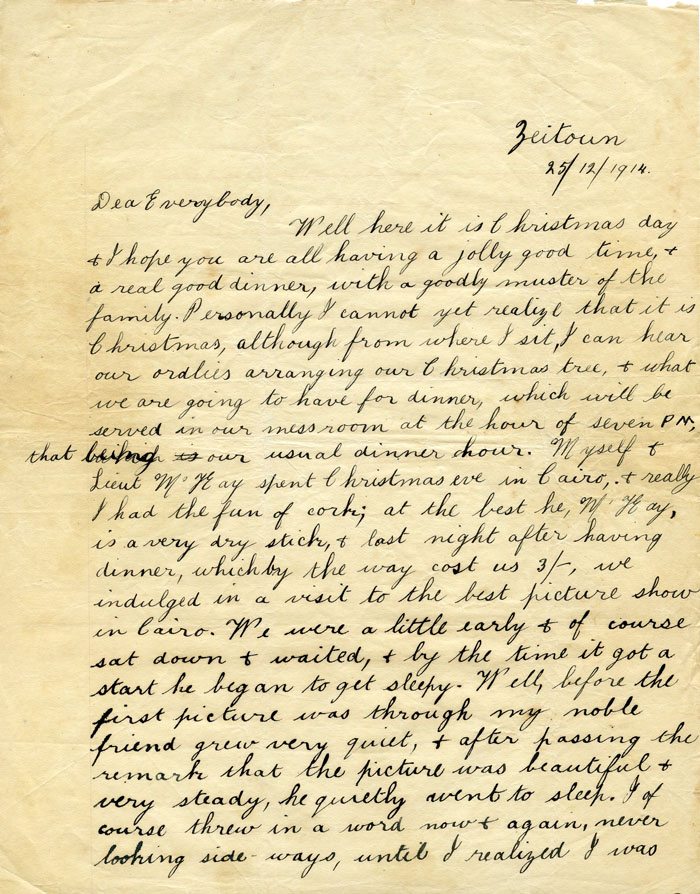 Zeitoun
25/12/1914.
Dea Everybody,
Well here it is Christmas day
& I hope you are all having a jolly good time, &
a real good dinner, with a goodly muster of the
family. Personally I cannot yet realize that it is
Christmas, although from where I sit, I can hear
our ordlies arranging our Christmas tree, & what
we are going to have for dinner, which will be
served in our messroom at the hour of seven PM,
that being our usual dinner hour. Myself &
Lieut McKay spent Christmas eve in Cairo, & really
I had the fun of cork; at the best he, McKay,
is a very dry stick, & last night after having
dinner, which by the way cost us 3/-, we
indulged in a visit to the best picture show
in Cairo. We were a little early & of course
sat down & waited, & by the time it got a
start he began to get sleepy. Well, before the
first picture was through my noble
friend grew very quiet, & after passing the
remark that the picture was beautiful &
very steady, he quietly went to sleep. I of
course threw in a word now & again, never
looking side-ways, until I realized I was